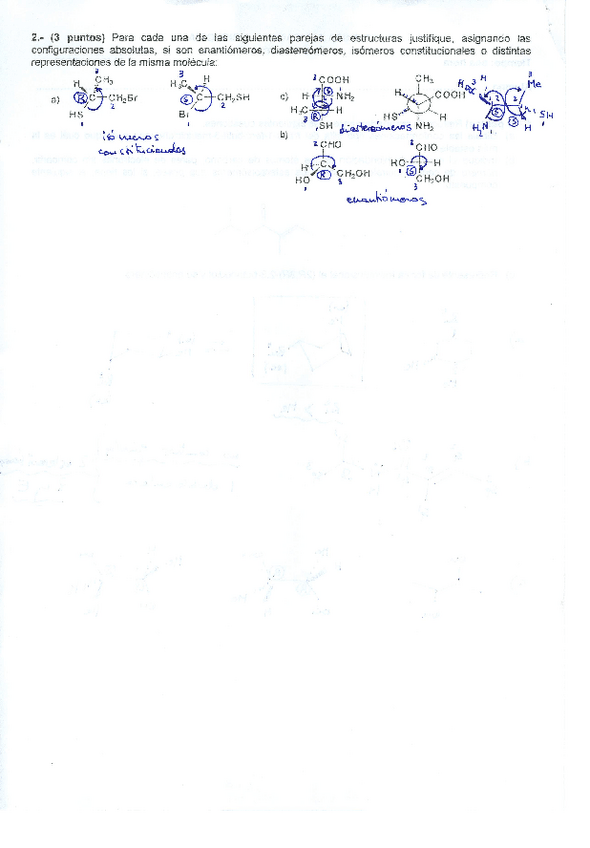 2.- (3 puntos) Para cada una de las siguientes parejas de estructuras justifique, asignando las
configuraciones absolutas, si son enantiómeros, diastereómeros, isómeros constitucionales o distintas
representaciones de la misma molécula:
a)
H
3
CH3
R
C
CH2Br
2
HS
1
3
H3C
H
S
C
CH2SH
2
Br
1
isómeros
constitucionales
c)
2 COOH
H
S
NH2
1
H3C
R
H
SH
1
CH3
H
COOH
HS
H
NH2
diastereómeros
3
H
3
Me
2
2
H2N
S
S
H
1
SH
b)
2 CHO
H
C
R
CH2OH
3
HO
1
2
CHO
HO
H
1
S
CH2OH
3
enantiómeros